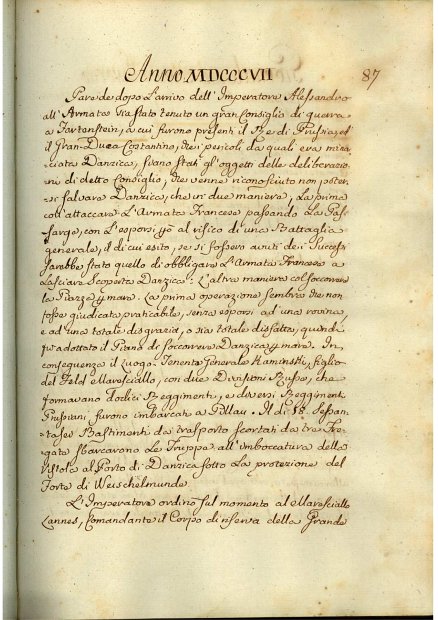 Anno MDCCCVII
87
Pare che dopo l'arrivo dell'Imperatore Alessandro
all'Armata sia stato tenuto un gran Consiglio di guerra
a Bartenstein, a cui furono presenti il Re di Prussia, ed
il Gran-Duca Costantino, che i pericoli da quali era mina
ciata Danzica, siano stati gl'oggetti delle deliberazio
ni di detto Consiglio, che venne riconosciuto non poter
si salvare Danzica, che in due maniere, la prima
coll'attaccare l'Armata Francese passando la Pas
sarge, con l'esporsi al risico di una Battaglia
generale, il di cui esito, se si fossero avuti dei Successi
sarebbe stato quello di obbligare l'Armata Francese a
lasciare scoperta Danzica: l'altra maniera col soccorrere
la Piazza mare. La prima operazione sembra che non
fosse giudicata praticabile, senza esporsi ad una rovina,
e ad una totale disgrazia, o sia totale disfatta, quindi
fu adottato il Piano di soccorrere Danzica mare. In
conseguenza il Luogo-Tenente Generale Kaminski, figlio
del Feld Maresciallo, con due Divisioni Russe, che
formavano dodici Reggimenti, e diversi Reggimenti
Prussiani furono imbarcati a Pillau. Il di Sessan
tasei Bastimenti da trasporto scortati da tre Fre
gate sbarcarono le Truppe all'imboccatura della
Vistola al Porto di Danzica sotto la protezione del
Forte di Weischelmunde
L'Imperatore ordinò sul momento al Maresciallo
Lannes, Comandante il Corpo di riserva della Grande